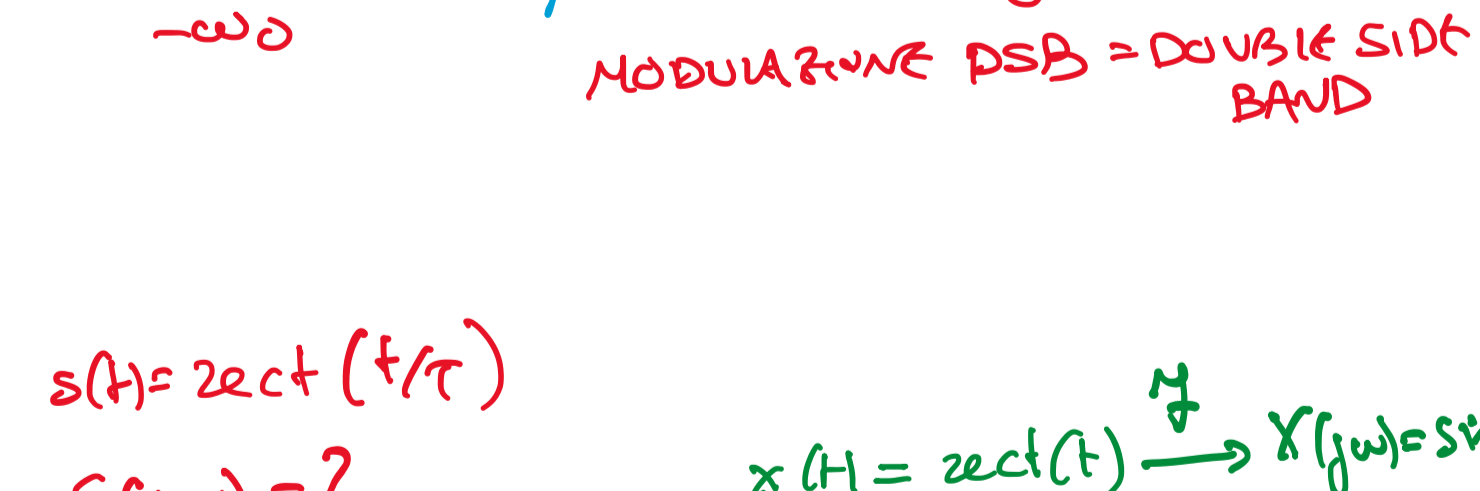 -ω0
MODULAZIONE DSB = DOUBLE SIDE
BAND
s(t)= rect (t/τ)
x(t) = rect(t) F→ X(jω)=
= ?